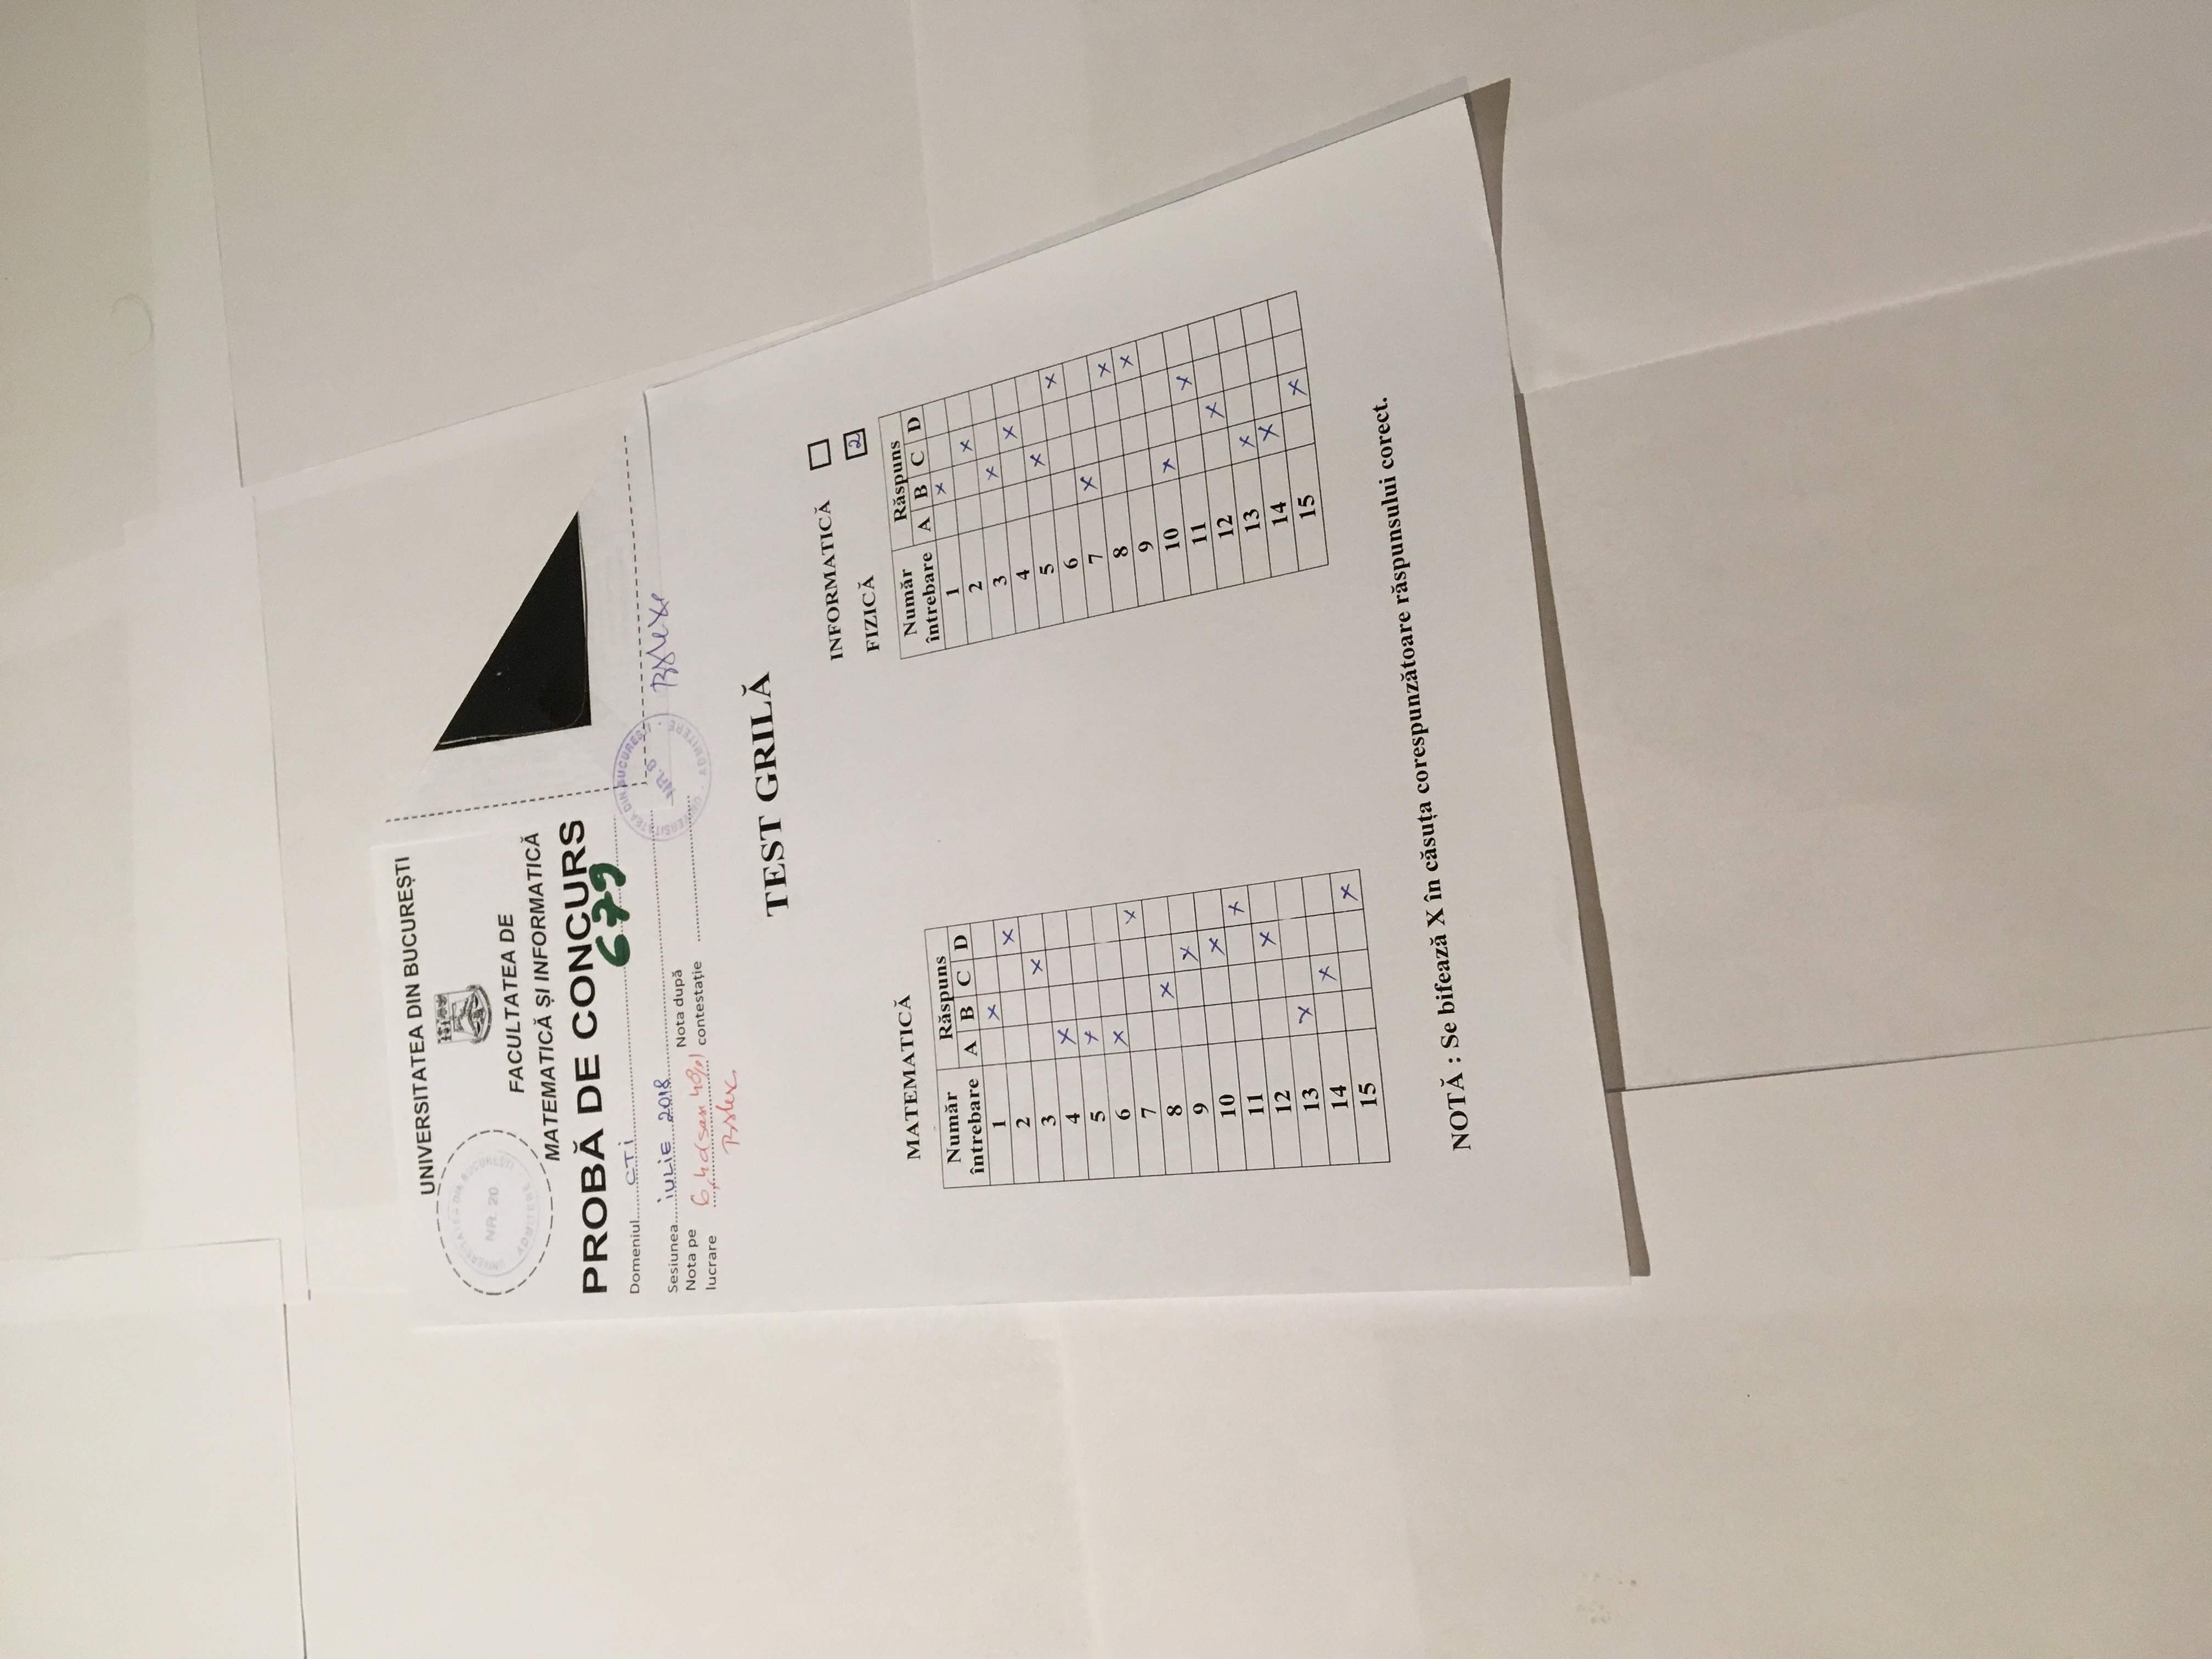 UNIVERSITATEA DIN BUCUREȘTI
UNIVERSITATEA DIN BUCUREȘTI
NR. 20
ADMITERE
FACULTATEA DE
MATEMATICĂ ȘI INFORMATICĂ
PROBĂ DE CONCURS
679
Domeniul CTi
Sesiunea iULiE 2018
Nota pe lucrare 6,40 (șase 40%)
Nota după contestație
UNIVERSITATEA DIN BUCUREȘTI
NR. 8
ADMITERE
TEST GRILĂ
INFORMATICĂ
FIZICĂ 2
MATEMATICĂ
Număr întrebare Răspuns
A B C D
1 X
2 X
3 X
4 X
5 X
6 X
7 X
8 X
9 X
10 X
11 X
12 X
13 X
14 X
15 X
Număr întrebare Răspuns
A B C D
1 X
2 X
3 X
4 X
5 X
6 X
7 X
8 X
9 X
10 X
11 X
12 X
13 X
14 X
15 X
NOTĂ : Se bifează X în căsuța corespunzătoare răspunsului corect.